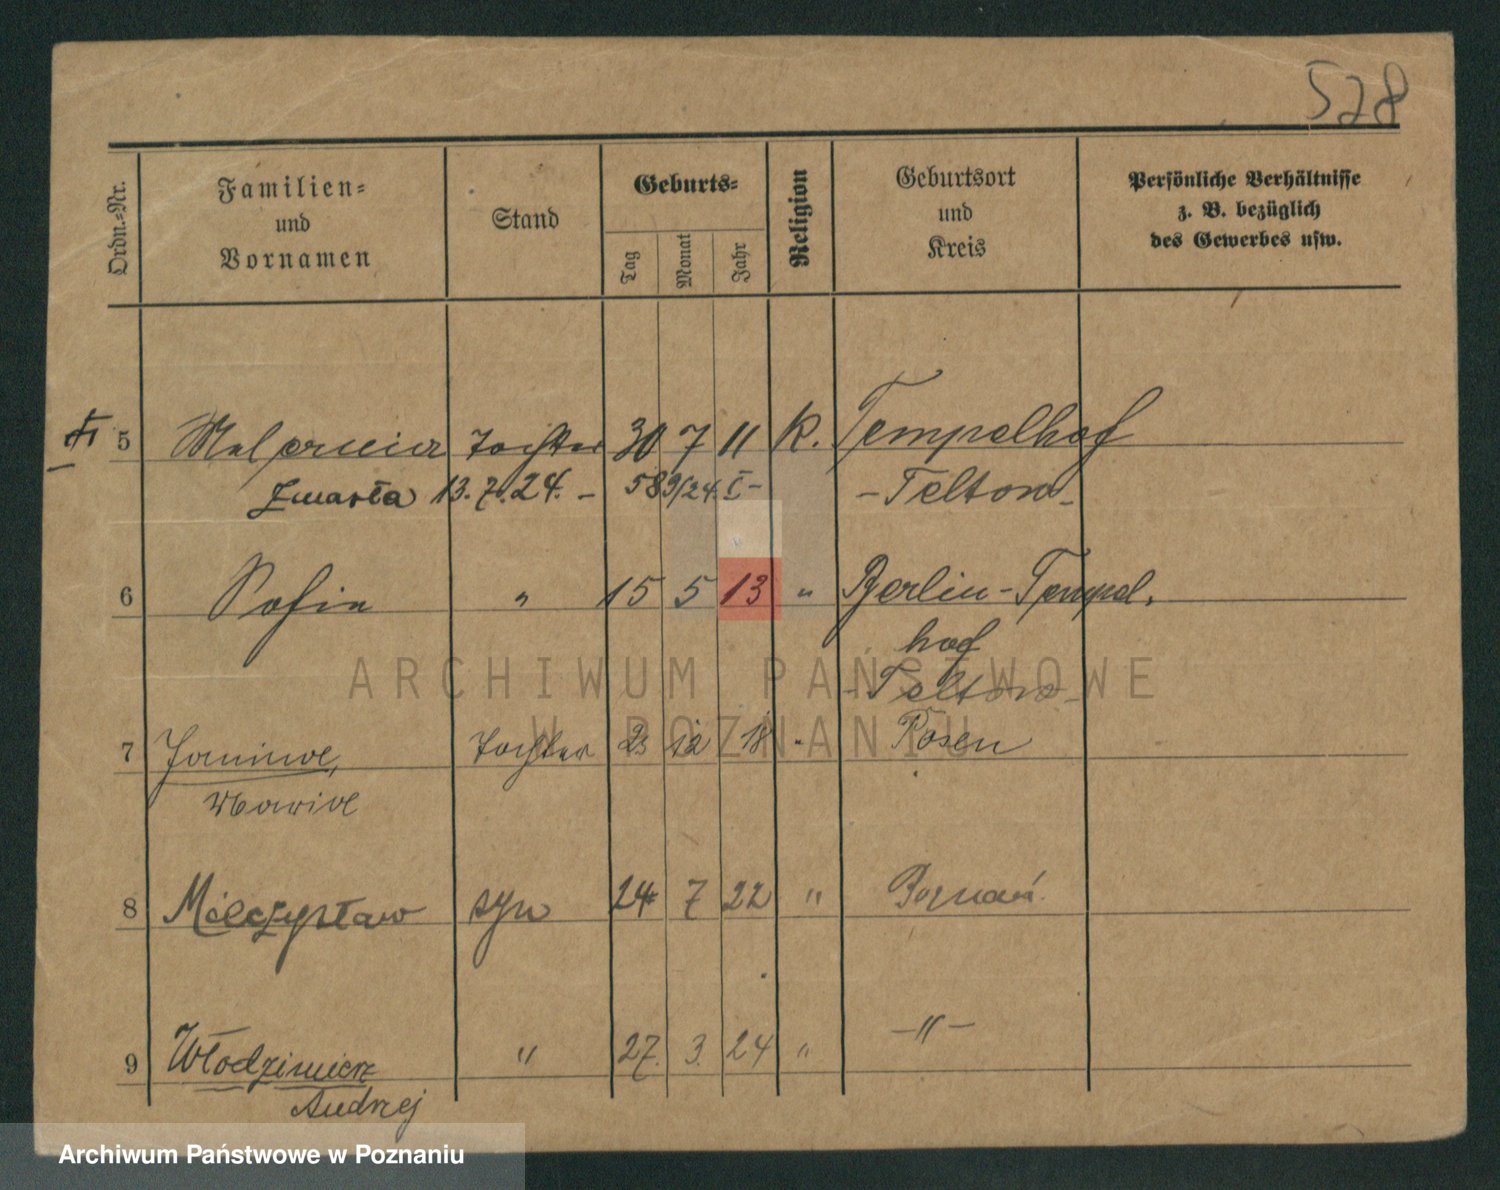 578
Ordn.-Nr.
Familien-
und
Vornamen
Stand
Geburts-
Tag
Monat
Jahr
Religion
Geburtsort
und
Kreis
Persönliche Verhältnisse
z. B. bezüglich
des Gewerbes usw.
5 Tochter 30 7 11 K. Tempelhof
zmarła 13.7.24. – 583/24 I – – Teltow –
6 Sofia " 15 5 13 " Berlin-Tempel-
hof
– Teltow –
7 Janina, Tochter 23 12 18 " Posen
Maria
8 Mieczysław syn 24 7 22 " Poznań.
9 Włodzimierz " 27. 3. 24 " – " –
Andrzej
ARCHIWUM PAŃSTWOWE
W POZNANIU
Archiwum Państwowe w Poznaniu